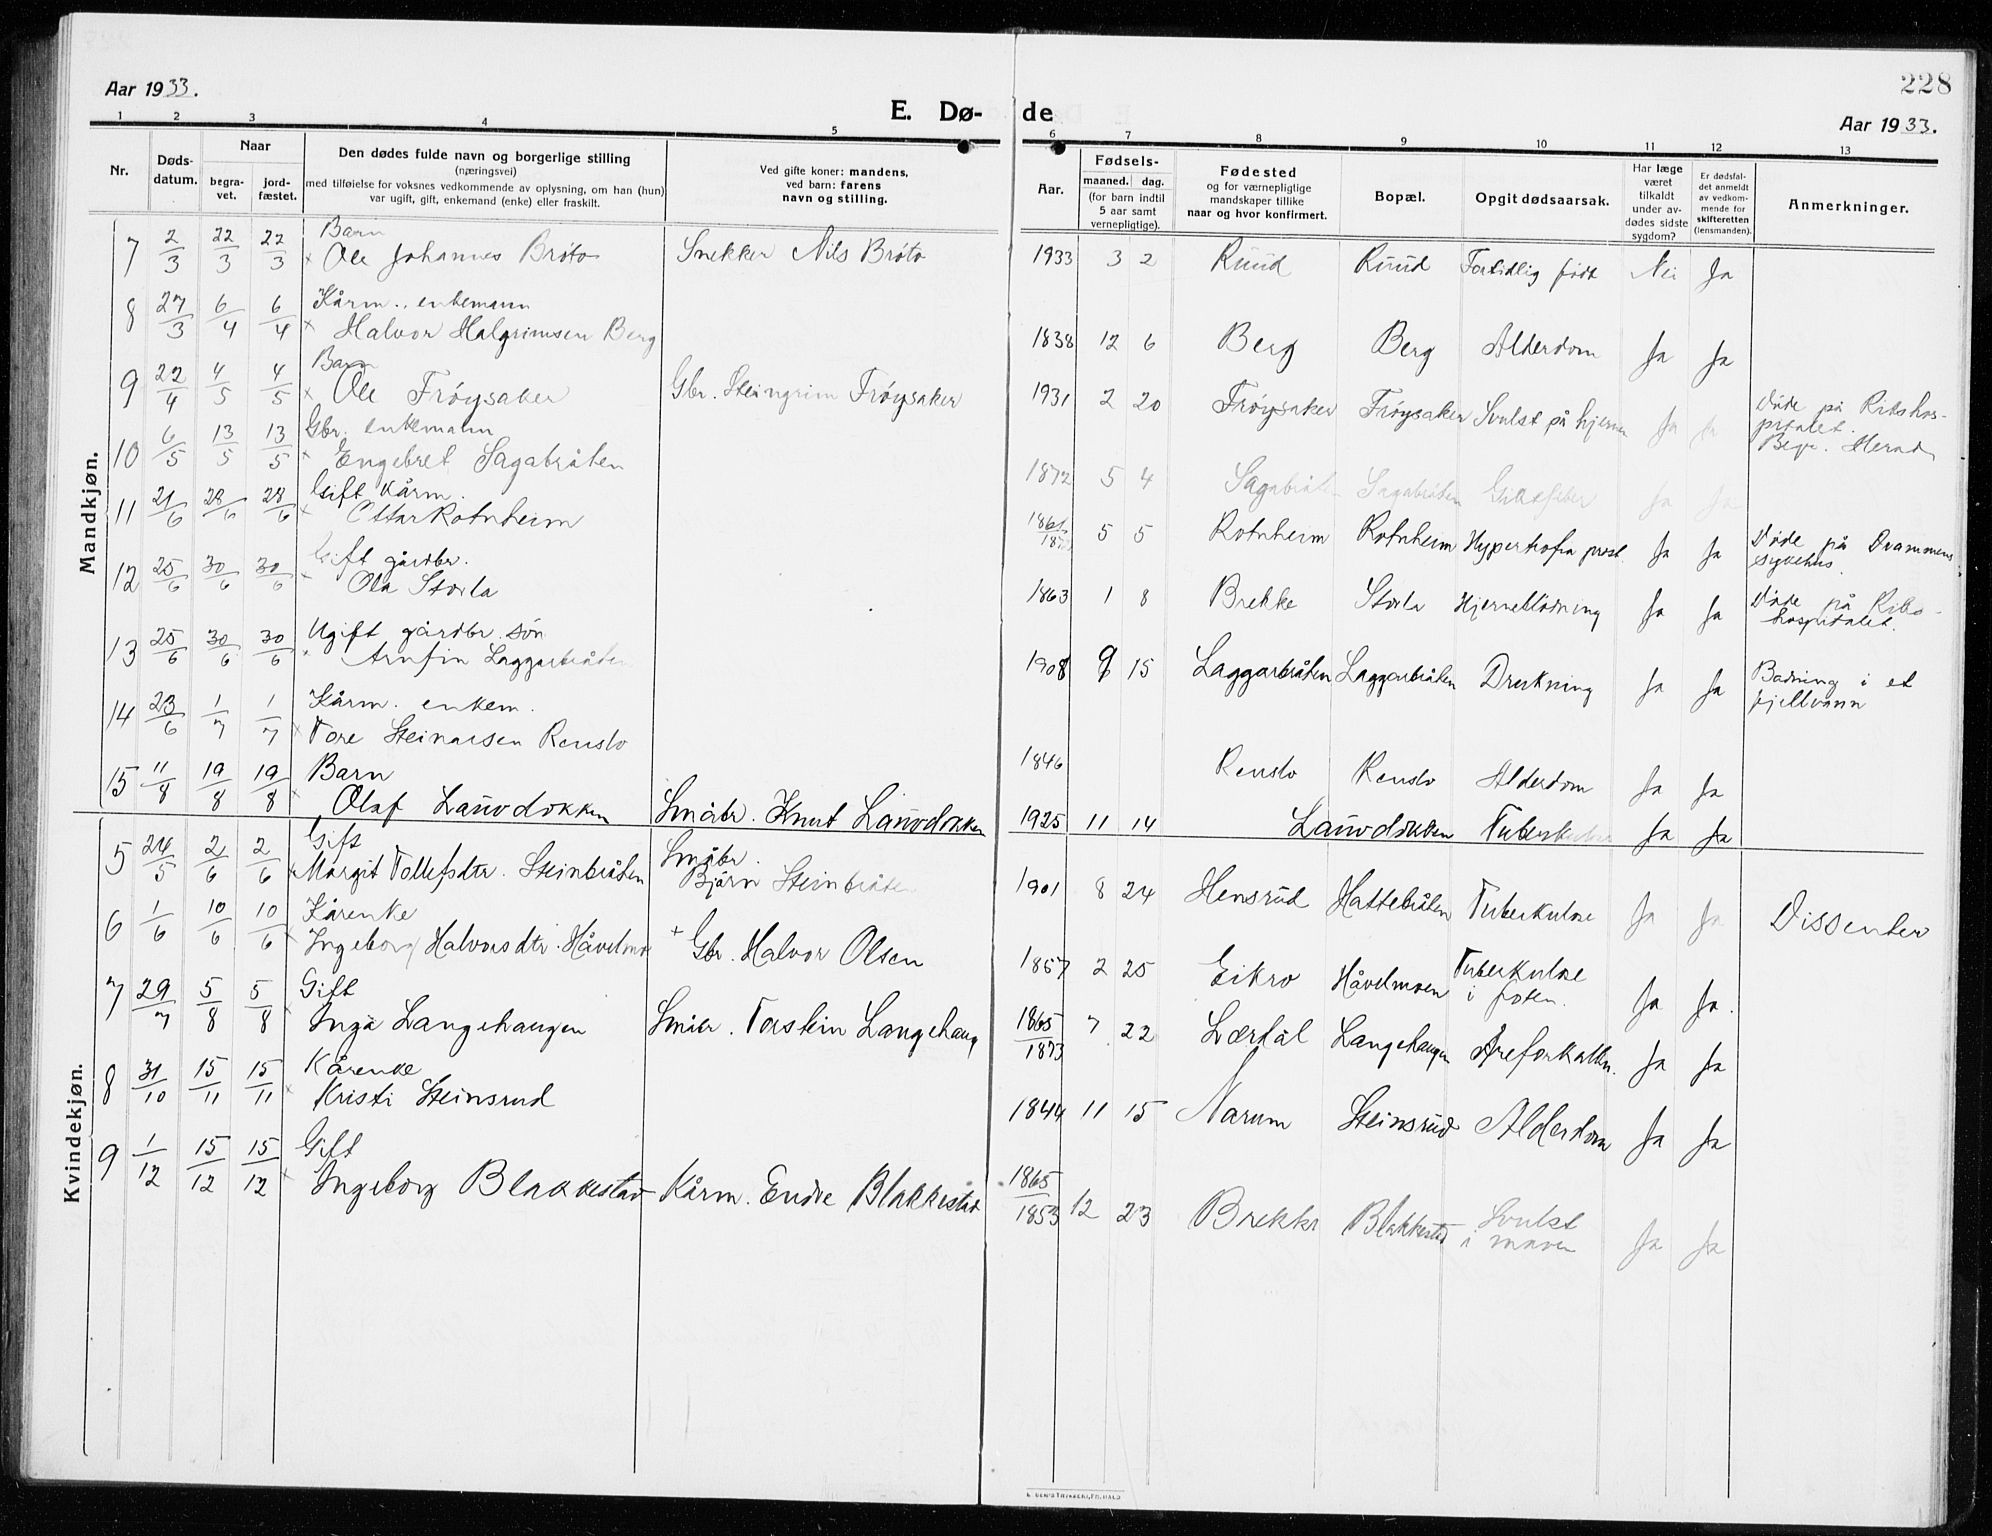 Aar 1933.
228
E. Dø-
de
Aar 1933.
1 2 3 4 5 6 7 8 9 10 11 12 13
Nr.
Døds-
datum.
Naar
begra-
vet.
jord-
fæstet.
Den dødes fulde navn og borgerlige stilling
(næringsvei)
med tilføielse for voksnes vedkommende av oplysning, om han (hun)
var ugift, gift, enkemand (enke) eller fraskilt.
Ved gifte koner: mandens,
ved barn: farens
navn og stilling.
Aar.
Fødsels-
maaned. dag.
(for barn indtil
5 aar samt
vernepligtige).
Fødested
og for værnepligtige
mandskaper tillike
naar og hvor konfirmert.
Bopæl.
Opgit dødsaarsak.
Har læge
været
tilkaldt
under av-
dødes sidste
sygdom?
Er dødsfal-
det anmeldt
av vedkom-
mende for
skifteretten
(lensmanden).
Anmerkninger.
Mandkjøn.
Barn
7 2/3 22/3 22/3 × Ole Johannes Bråto Snekker Nils Bråto 1933 3 2 Ruud Ruud Fortidlig født Nei Ja
Kårm. enkemann
8 27/3 6/4 6/4 × Halvor Halgrimsen Berg 1838 12 6 Berg Berg Alderdom Ja Ja
Barn
9 22/4 4/5 4/5 × Ole Frøysaker Gbr. Steingrim Frøysaker 1931 2 20 Frøysaker Frøysaker Svulst på hjernen Ja Ja Døde på Rikshos-
pitalet.
Begr. Herad
Gbr. enkemann
10 6/5 13/5 13/5 × Engebret Sagabråten 1872 5 4 Sagabråten Sagabråten Giktfeber Ja Ja
Gift Kårm.
11 21/6 28/6 28/6 × Ottar Rotnheim 5 5 Rotnheim Rotnheim Hypertrofia prost. Ja Ja Døde på Drammens
sykehus.
Gift gårdbr.
12 25/6 30/6 30/6 Ola Storla 1863 1 8 Brekke Storla Hjerneblødning Ja Ja Døde på Riks-
hospitalet.
Ugift gårdbr. søn
13 25/6 30/6 30/6 Arnfin Laggarbråten 1908 9 15 Laggarbråten Laggarbråten Drukning Ja Ja Badning i et
fjellvann
Kårm. enkem.
14 23/6 1/7 1/7 × Tore Steinarsen Renslo 1846 Renslo Renslo Alderdom Ja Ja
Barn
15 11/8 19/8 19/8 Olaf Lauvdokken Småbr. Knut Lauvdokken 1925 11 14 Lauvdokken Tuberkulose Ja Ja
Kvindekjøn.
Gift Småbr.
5 24/5 2/6 2/6 × Margit Tollefsdtr. Steinbråten Bjørn Steinbråten 1901 8 24 Hensrud Hattebråten Tuberkulose Ja Ja Dissenter
Kårenke
6 1/6 10/6 10/6 × Ingeborg Halvorsdtr. Håvelmoen + Gbr. Halvor Olsen 1857 2 25 Eikro Håvelmoen Tuberkulose
i foten. Ja Ja.
Gift
7 29/7 5/8 5/8 × Inga Langehaugen Småbr. Torstein Langehaug 1865/1873 7 22 Lærdal Langehaugen Åreforkalkn. Ja Ja
Kårenke
8 31/10 15/11 15/11 × Kristi Steinsrud 1844 11 15 Narum Steinsrud Alderdom Ja Ja
Gift
9 1/12 15/12 15/12 × Ingeborg Blakkestad Kårm. Endre Blakkestad 1865/1853 12 23 Brekke Blakkestad Svulst
i maven Ja Ja